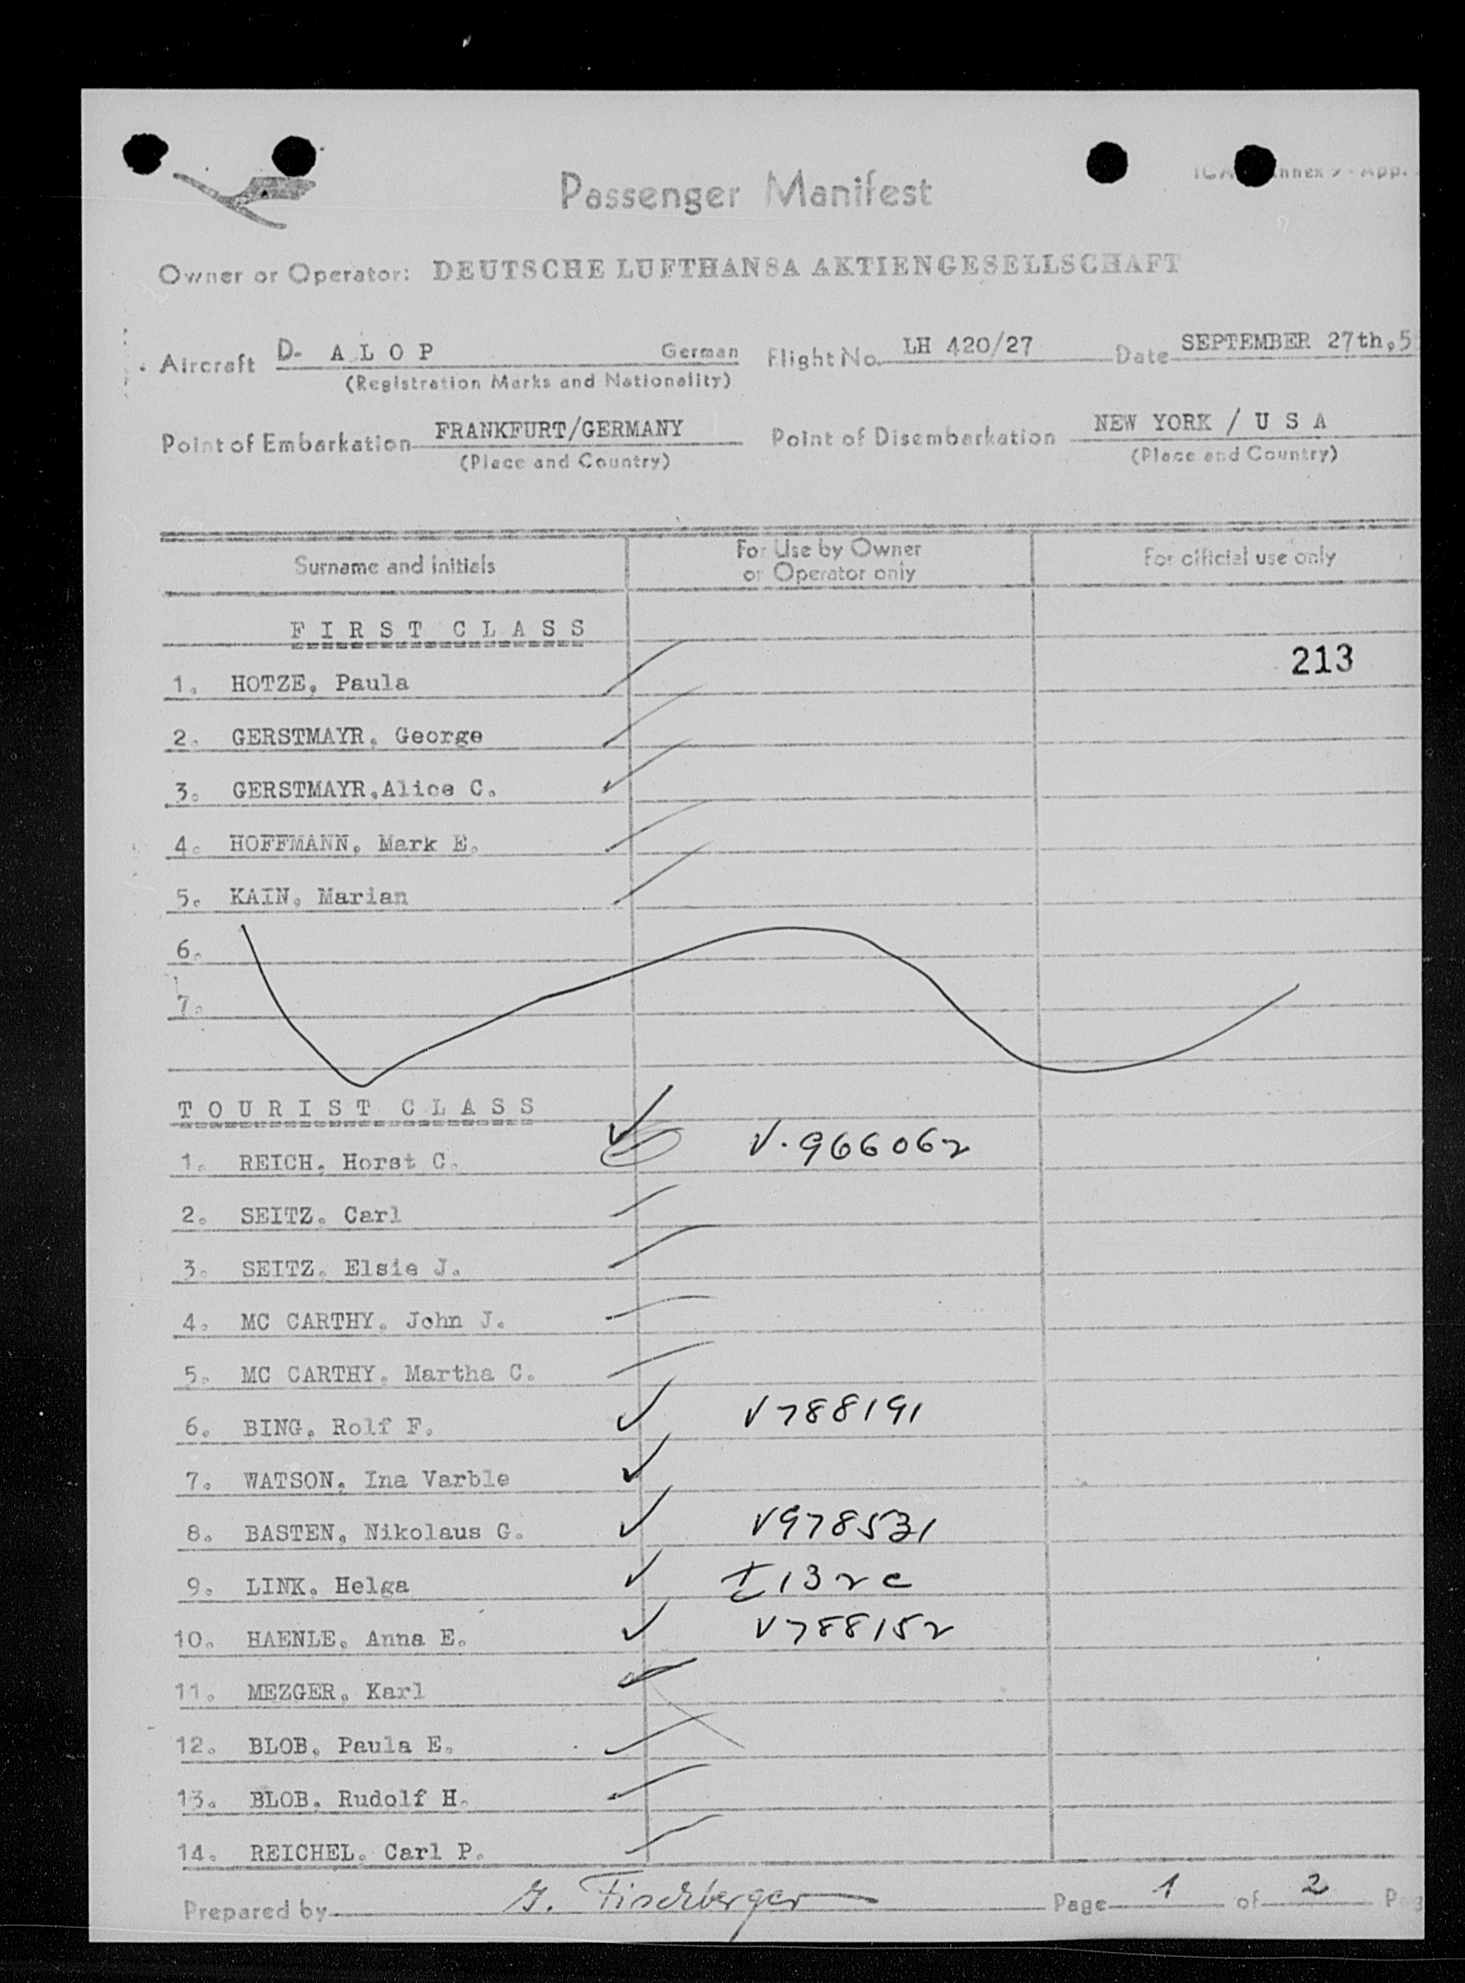 Passenger Manifest
Owner or Operator: DEUTSCHE LUFTHANSA AKTIENGESELLSCHAFT
Aircraft D- A L O P German Flight No. LH 420/27 Date SEPTEMBER 27th,5
(Registration Marks and Nationality)
Point of Embarkation FRANKFURT/GERMANY Point of Disembarkation NEW YORK / U S A
(Place and Country) (Place and Country)
Surname and initials For Use by Owner or Operator only For official use only
F I R S T C L A S S
213
1. HOTZE, Paula
2. GERSTMAYR, George
3. GERSTMAYR,Alice C.
4. HOFFMANN, Mark E.
5. KAIN, Marian
6.
7.
T O U R I S T C L A S S
1. REICH, Horst C. V.966062
2. SEITZ, Carl
3. SEITZ, Elsie J.
4. MC CARTHY, John J.
5. MC CARTHY, Martha C.
6. BING, Rolf F. V788191
7. WATSON, Ina Varble
8. BASTEN, Nikolaus G. V978531
9. LINK, Helga
10. HAENLE, Anna E. V788152
11. MEZGER, Karl
12. BLOB, Paula E.
13. BLOB, Rudolf H.
14. REICHEL, Carl P.
Prepared by Fischberger Page 1 of 2